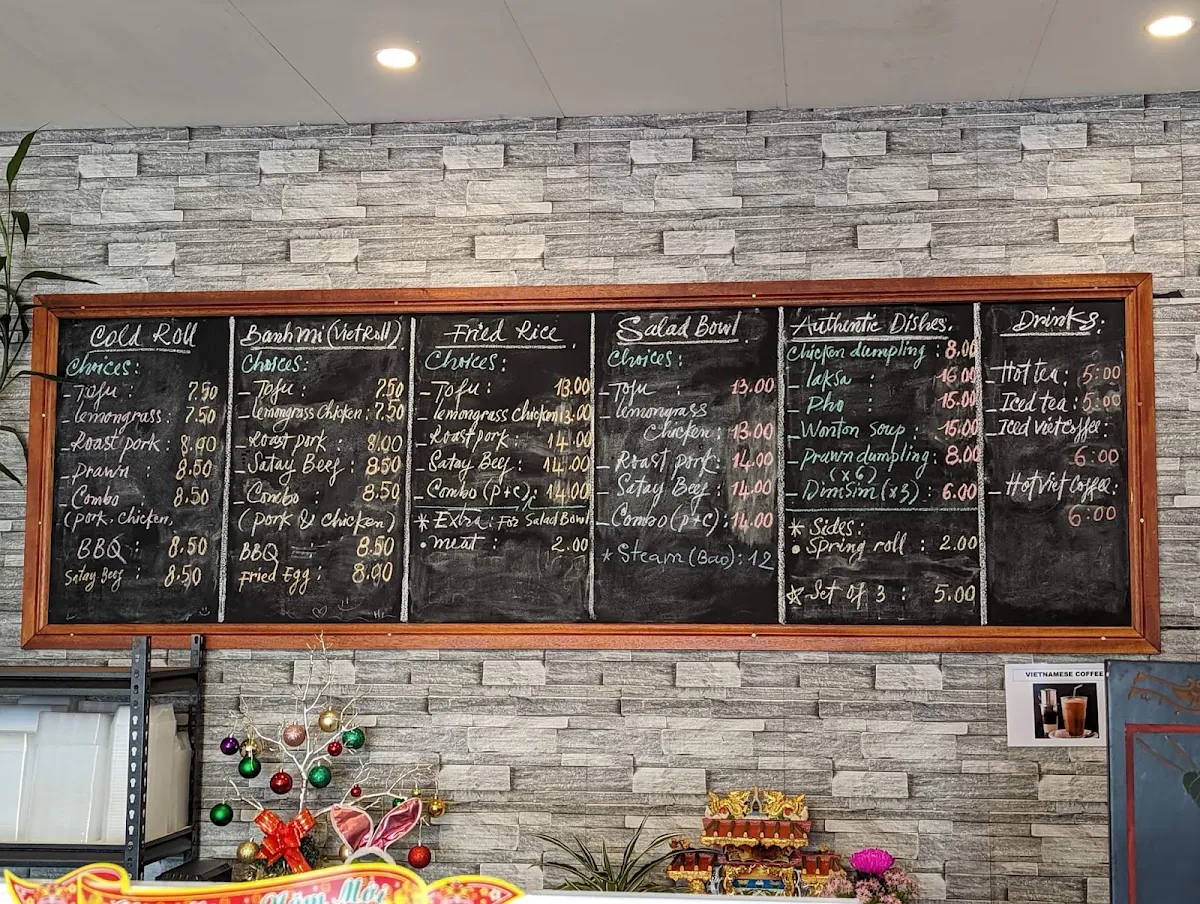 Cold Roll
Choices:
- Tofu : 7.50
- lemongrass : 7.50
- Roast pork : 8.00
- Prawn : 8.50
- Combo : 8.50
(pork, chicken,
BBQ : 8.50
Satay Beef : 8.50
Banh mi (Viet Roll)
Choices:
- Tofu : 7.50
- lemongrass chicken : 7.50
- Roast pork : 8.00
- Satay Beef : 8.50
- Combo : 8.50
(pork & chicken)
BBQ : 8.50
Fried Egg : 8.00
Fried Rice
Choices:
- Tofu : 13.00
- lemongrass chicken 13.00
- Roast pork : 14.00
- Satay Beef : 14.00
- Combo (P+C) : 14.00
* Extra : For Salad Bowl
• meat : 2.00
Salad Bowl
Choices :
- Tofu : 13.00
- lemongrass
chicken : 13.00
- Roast pork : 14.00
- Satay Beef : 14.00
- Combo (P+C) : 14.00
* Steam (Bao) : 12
Authentic Dishes.
Chicken dumpling : 8.00
- laksa : 16.00
- Pho : 15.00
- Wonton soup : 15.00
- Prawn dumpling : 8.00
(x6)
- DimSim (x3) : 6.00
* Sides:
• Spring roll : 2.00
☆ Set of 3 : 5.00
Drinks:
- Hot tea : 5:00
- Iced tea : 5:00
- Iced viet coffee :
6:00
- Hot Viet Coffee :
6:00
VIETNAMESE COFFEE
Năm Mới